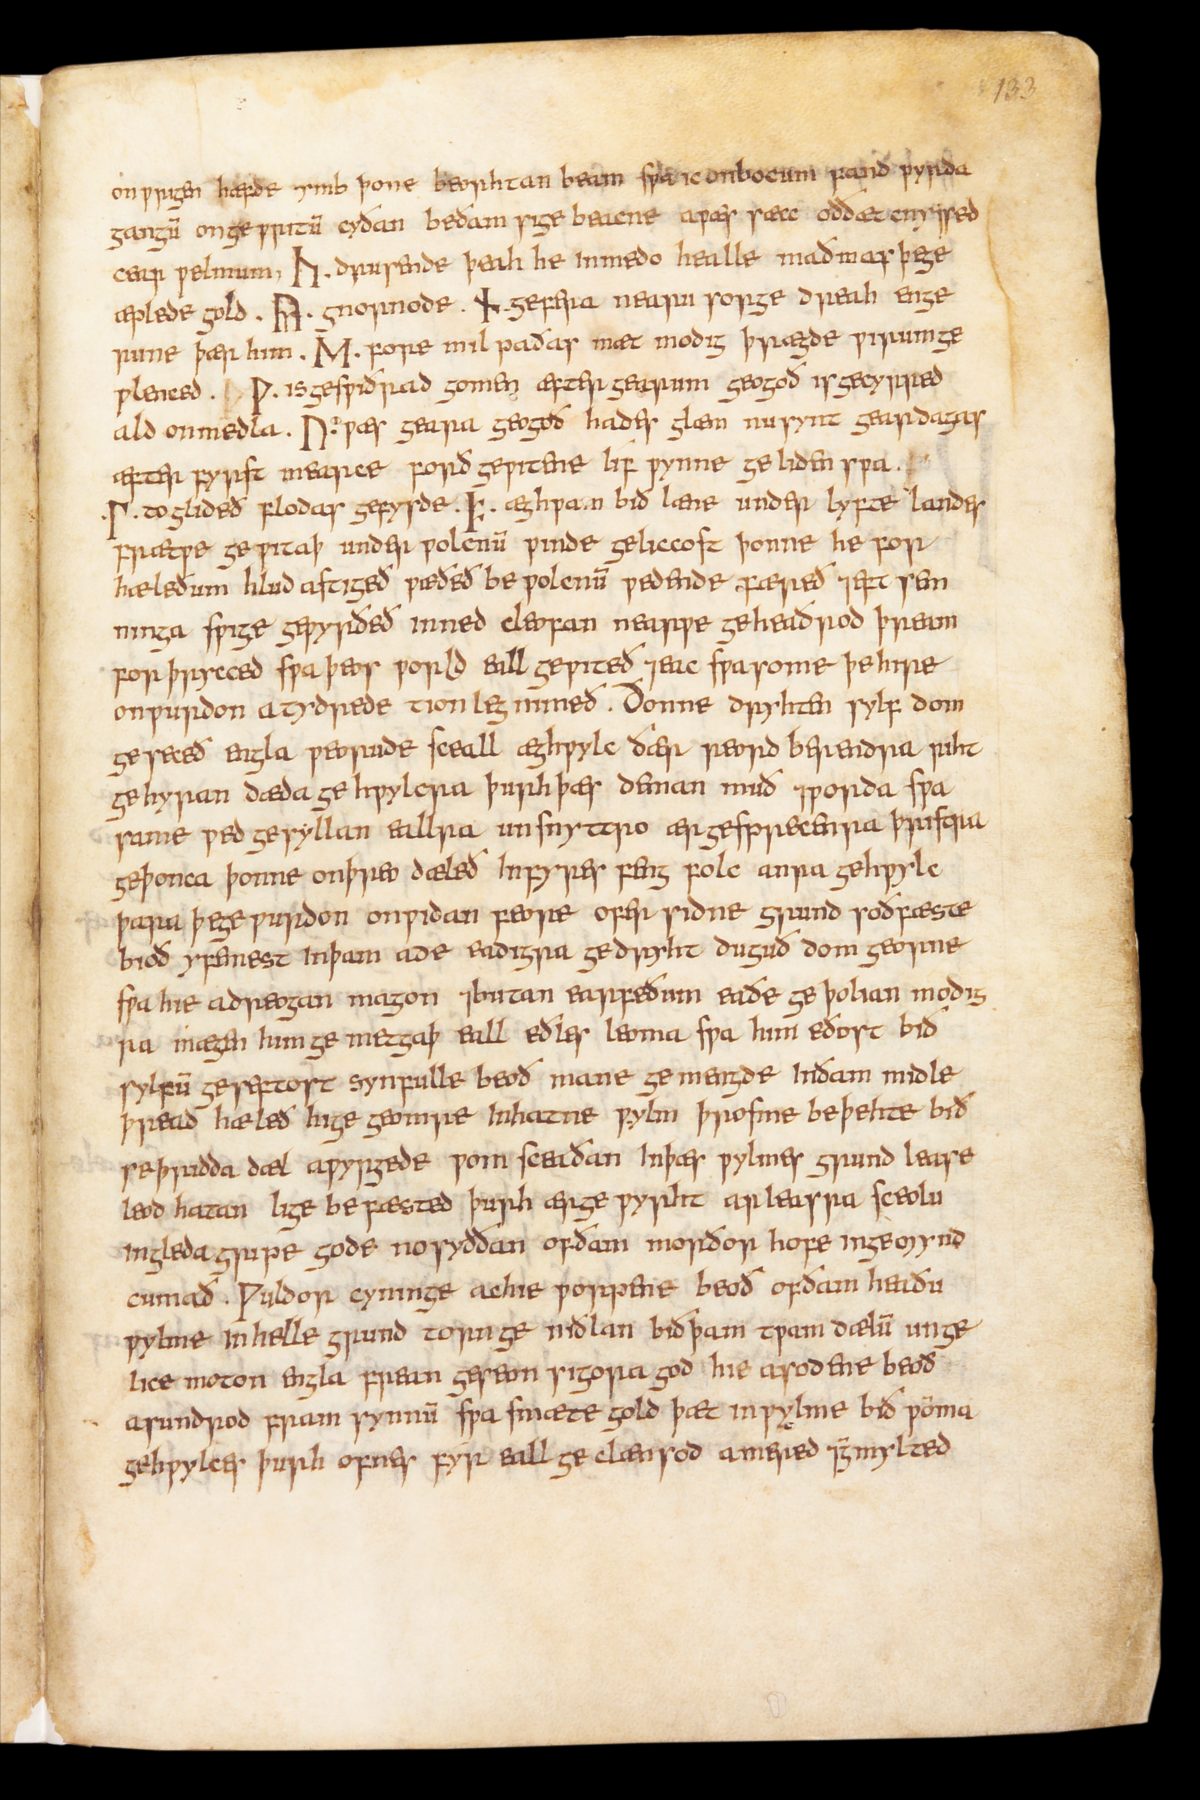 onƿrigen hæfde ymb þone beorhtan beam sƿa ic onbocum fand ƿyrda
gangū ongeƿritū cyðan beðam sige beacne aƿæs sæcc oððæt cnyssed
cear ƿelmum, ᚳ. drusende þeah he inmedo healle maðmas þege
æplede gold . ᚣ. gnornode . ᚾ. gefera nearu sorge dreah enge
rune þær him . ᛖ. fore mil paðas mæt modig þrægde ƿirum ge
ƿlenced . ᚹ. is gesƿiðrad gomen æfter gearum geogoð is gecyrred
ald onmedla . ᚢ. ƿæs geara geogoð hades glæm nu synt geardagas
æfter fyrst mearce forð geƿitene lif ƿynne geliden sƿa .
. ᛚ. toglideð flodas gefysde . ᚠ. æghƿam bið læne under lyfte landes
frætƿe geƿitaþ under ƿolcnū ƿinde geliccost þonne he for
hæleðum hlud astigeð ƿæðeð be ƿolcnū ƿedende færeð ⁊eft sem
ninga sƿige geƿyrðeð inned cleofan nearƿe geheaðrod þream
forþrycced sƿa þeos ƿorld eall geƿiteð ⁊eac sƿasome þe hire
onƿurdon atydrede tion leg nimeð . Ðonne dryhten sylf dom
geseceð engla ƿeorude sceall æghƿylc ðær reord berendra riht
gehyran dæda gehƿylcra þurh þæs deman muð ⁊ƿorda sƿa
same ƿed gesyllan eallra unsnyttro ærgesprecenra þristra
geþonca þonne onþreo dæleð infyres feng folc anra gehƿylc
þara þegeƿurdon onƿidan feore ofer sidne grund soðfæste
bioð yfemest inþam ade eadigra gedryht duguð dom georne
sƿa hie adreogan magon ⁊butan earfeðum eaðe geþolian modig
ra mægen him gemetgaþ eall eðles leoma sƿa him eðost bið
sylfū geseftost synfulle beoð mane gemengde inðam midle
þread hæleð hige geomre inhatne ƿylm þrosme beþehte bið
seþridda dæl aƿyrgede ƿom sceaðan inþæs ƿylmes grund lease
leod hatan lige befæsted þurh ærgeƿyrht arleasra sceolu
ingleda gripe gode nosyððan ofðam morðor hofe ingemynd
cumað . Ƿuldor cyninge achie ƿorpene beoð ofðam heaðu
ƿylme inhelle grund torngeniðlan bið þam tƿam dælū unge
lice moton engla frean geseon sigora god hie asodene beoð
asundrod fram synnū sƿa smæte gold þæt inƿylme bið ƿoma
gehƿylces þurh ofnes fyr eall geclænsod amered ⁊gemylted